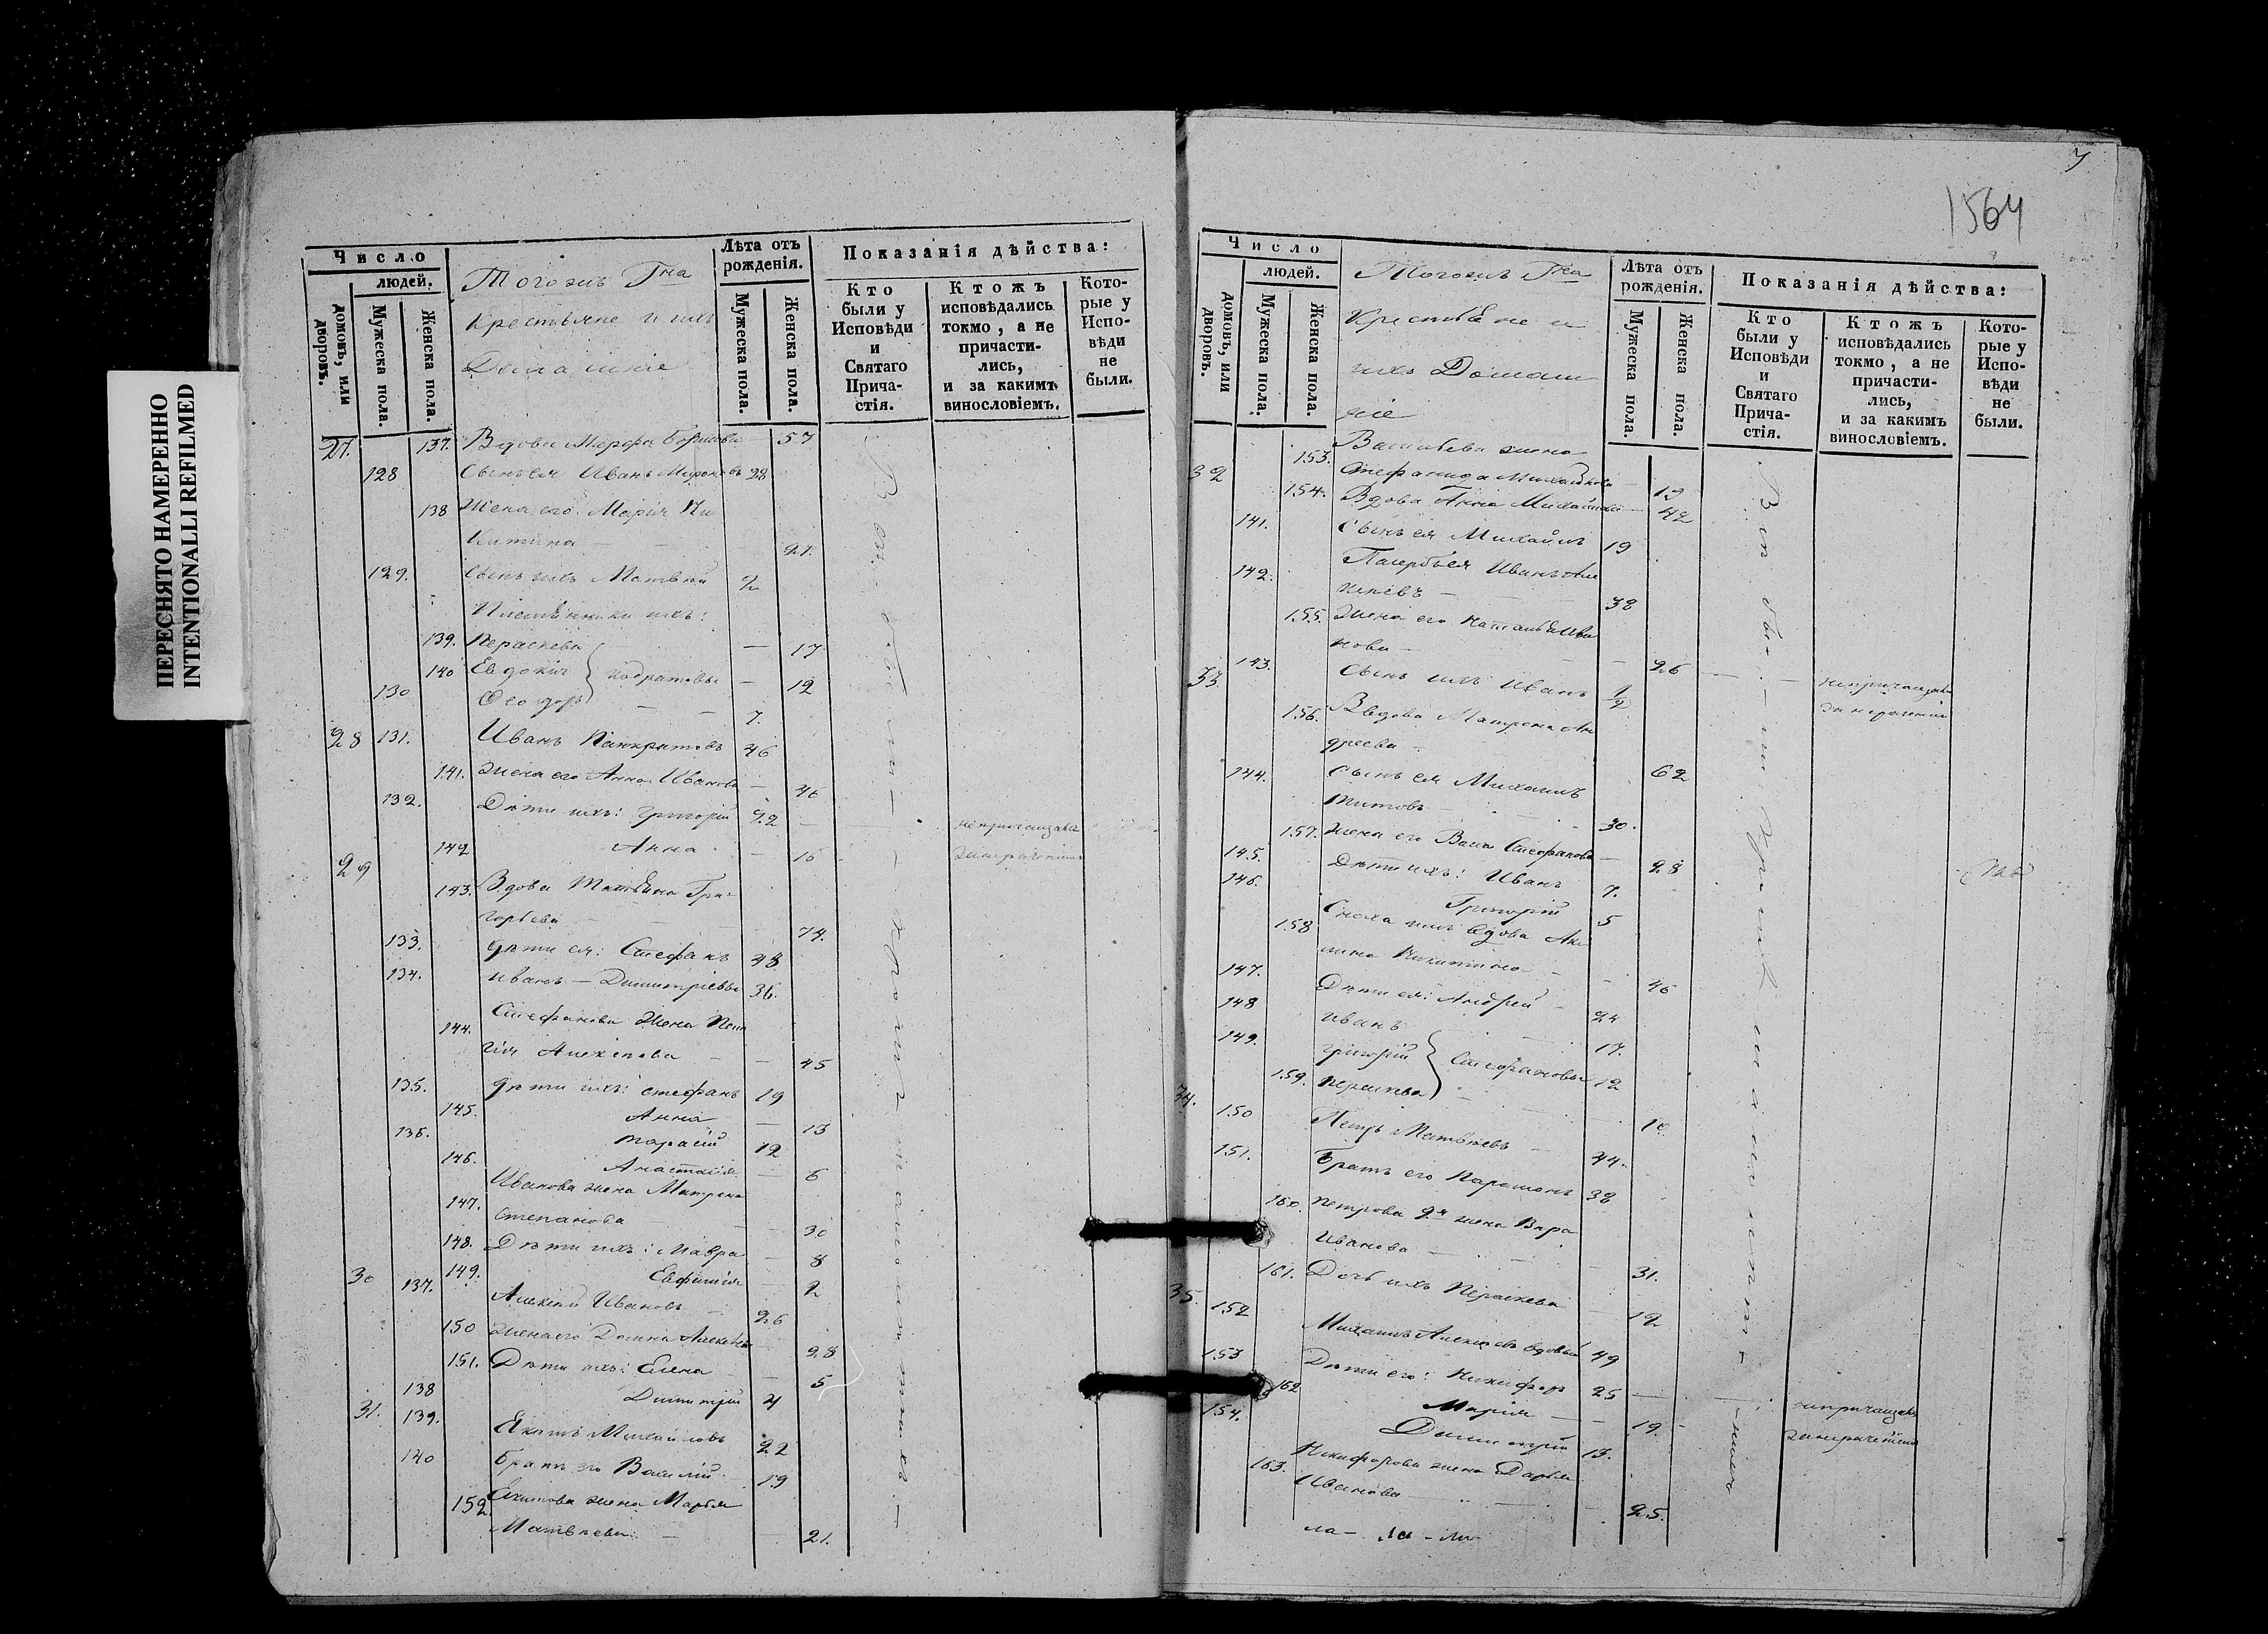 ПЕРЕСНЯТО НАМЕРЕННО
INTENTIONALLI REFILMED
Число
людей.
домовъ, или дворовъ.
Мужеска пола.
Женска пола.
Тогожъ Гна
Крестьяне и ихъ
Домашніе
Лѣта отъ рожденія.
Мужеска пола.
Женска пола.
Показанія дѣйства:
Кто были у Исповѣди и Святаго Прича-стія.
Ктожъ исповѣдались токмо, а не причасти-лись, и за какимъ винословіемъ.
Кото-рые у Испо-вѣди не были.
27. 137. Вдова 57
128 Сынъ ея Иванъ Мироновъ 28
138 Жена его Марія Ни
китина 27.
129. Сынъ ихъ Матвѣй 2
Племянники ихъ:
139. Параскева — 17
140 Евдокія } Кодратовы — 12
130 Ѳеодоръ — — 7.
28 131. Иванъ Панкратовъ 46
141. Жена его Анна Иванова — 46
132. Дѣти ихъ: Григорій 22 — непричащался
142 Анна — 16 занерачениемъ
29 143. Вдова Татьяна Гри-
горьева — 74.
133. Дѣти ея: Стефанъ 48
134. Иванъ — Димитріевы 36.
144. Стефанова жена Пела
гія — — 45
135. Дѣти ихъ: Стефанъ 19
145. Анна — 13
136. Тарасій 12
146. Анастасія — 6
147. Иванова жена Матрена
Степанова — 30
148. Дѣти ихъ: Мавра — 8
149. Евфимія — 2
30 137. Алексѣй Ивановъ — 26
150 Жена его Домна 28
151. Дѣти ихъ: Елена — 5
138 Димитрій 4
31. 139. Екимъ Михайловъ 22
140 Братъ его Василій 19
152. Екимова жена Марья
Матвѣева — 21.
7
1564
Число
людей.
домовъ, или дворовъ.
Мужеска пола.
Женска пола.
Тогожъ Гна
Крестьяне и
ихъ Домаш
ніе
Лѣта отъ рожденія.
Мужеска пола.
Женска пола.
Показанія дѣйства:
Кто были у Исповѣди и Святаго Прича-стія.
Ктожъ исповѣдались токмо, а не причасти-лись, и за какимъ винословіемъ.
Кото-рые у Испо-вѣди не были.
Васильева жена
153. Стефанида Михайлова — 19
32 154. Вдова Анна — 42
141. Сынъ ея Михаилъ 19
142. Иванъ Але
ксѣевъ — 38
155. Жена его Наталья Ива
нова — — 26
33 143. Сынъ ихъ Иванъ 1/2 непричащался
156. Вдова Матрена Ан
дреева — 62
144. Сынъ ея Михаилъ
Титовъ — 30.
157. Жена его Васа Стефанова — 28
145. Дѣти ихъ: Иванъ 7.
146. Григорій 5
158 Сноха ихъ вдова Аку
лина Никитина — — 46
147. Дѣти ея: Андрей — 24
148 Иванъ 17.
149. Григорій } Стефановы 12
159. Параскева — 10
34. 150 Петръ Матвѣевъ — 44.
151. Братъ его Парамонъ 38
160. Петрова 2я жена Вѣра
Иванова — 31.
161. Дочь ихъ Параскева — 12
35. 152 Михаилъ Алексѣевъ вдовый 49
153 Дѣти его: Никифоръ 25 — непричащался
162 Марія — 19 занерачениемъ
154. Димитрій 13.
163. Никифорова жена Дарья
Иванова — 25.